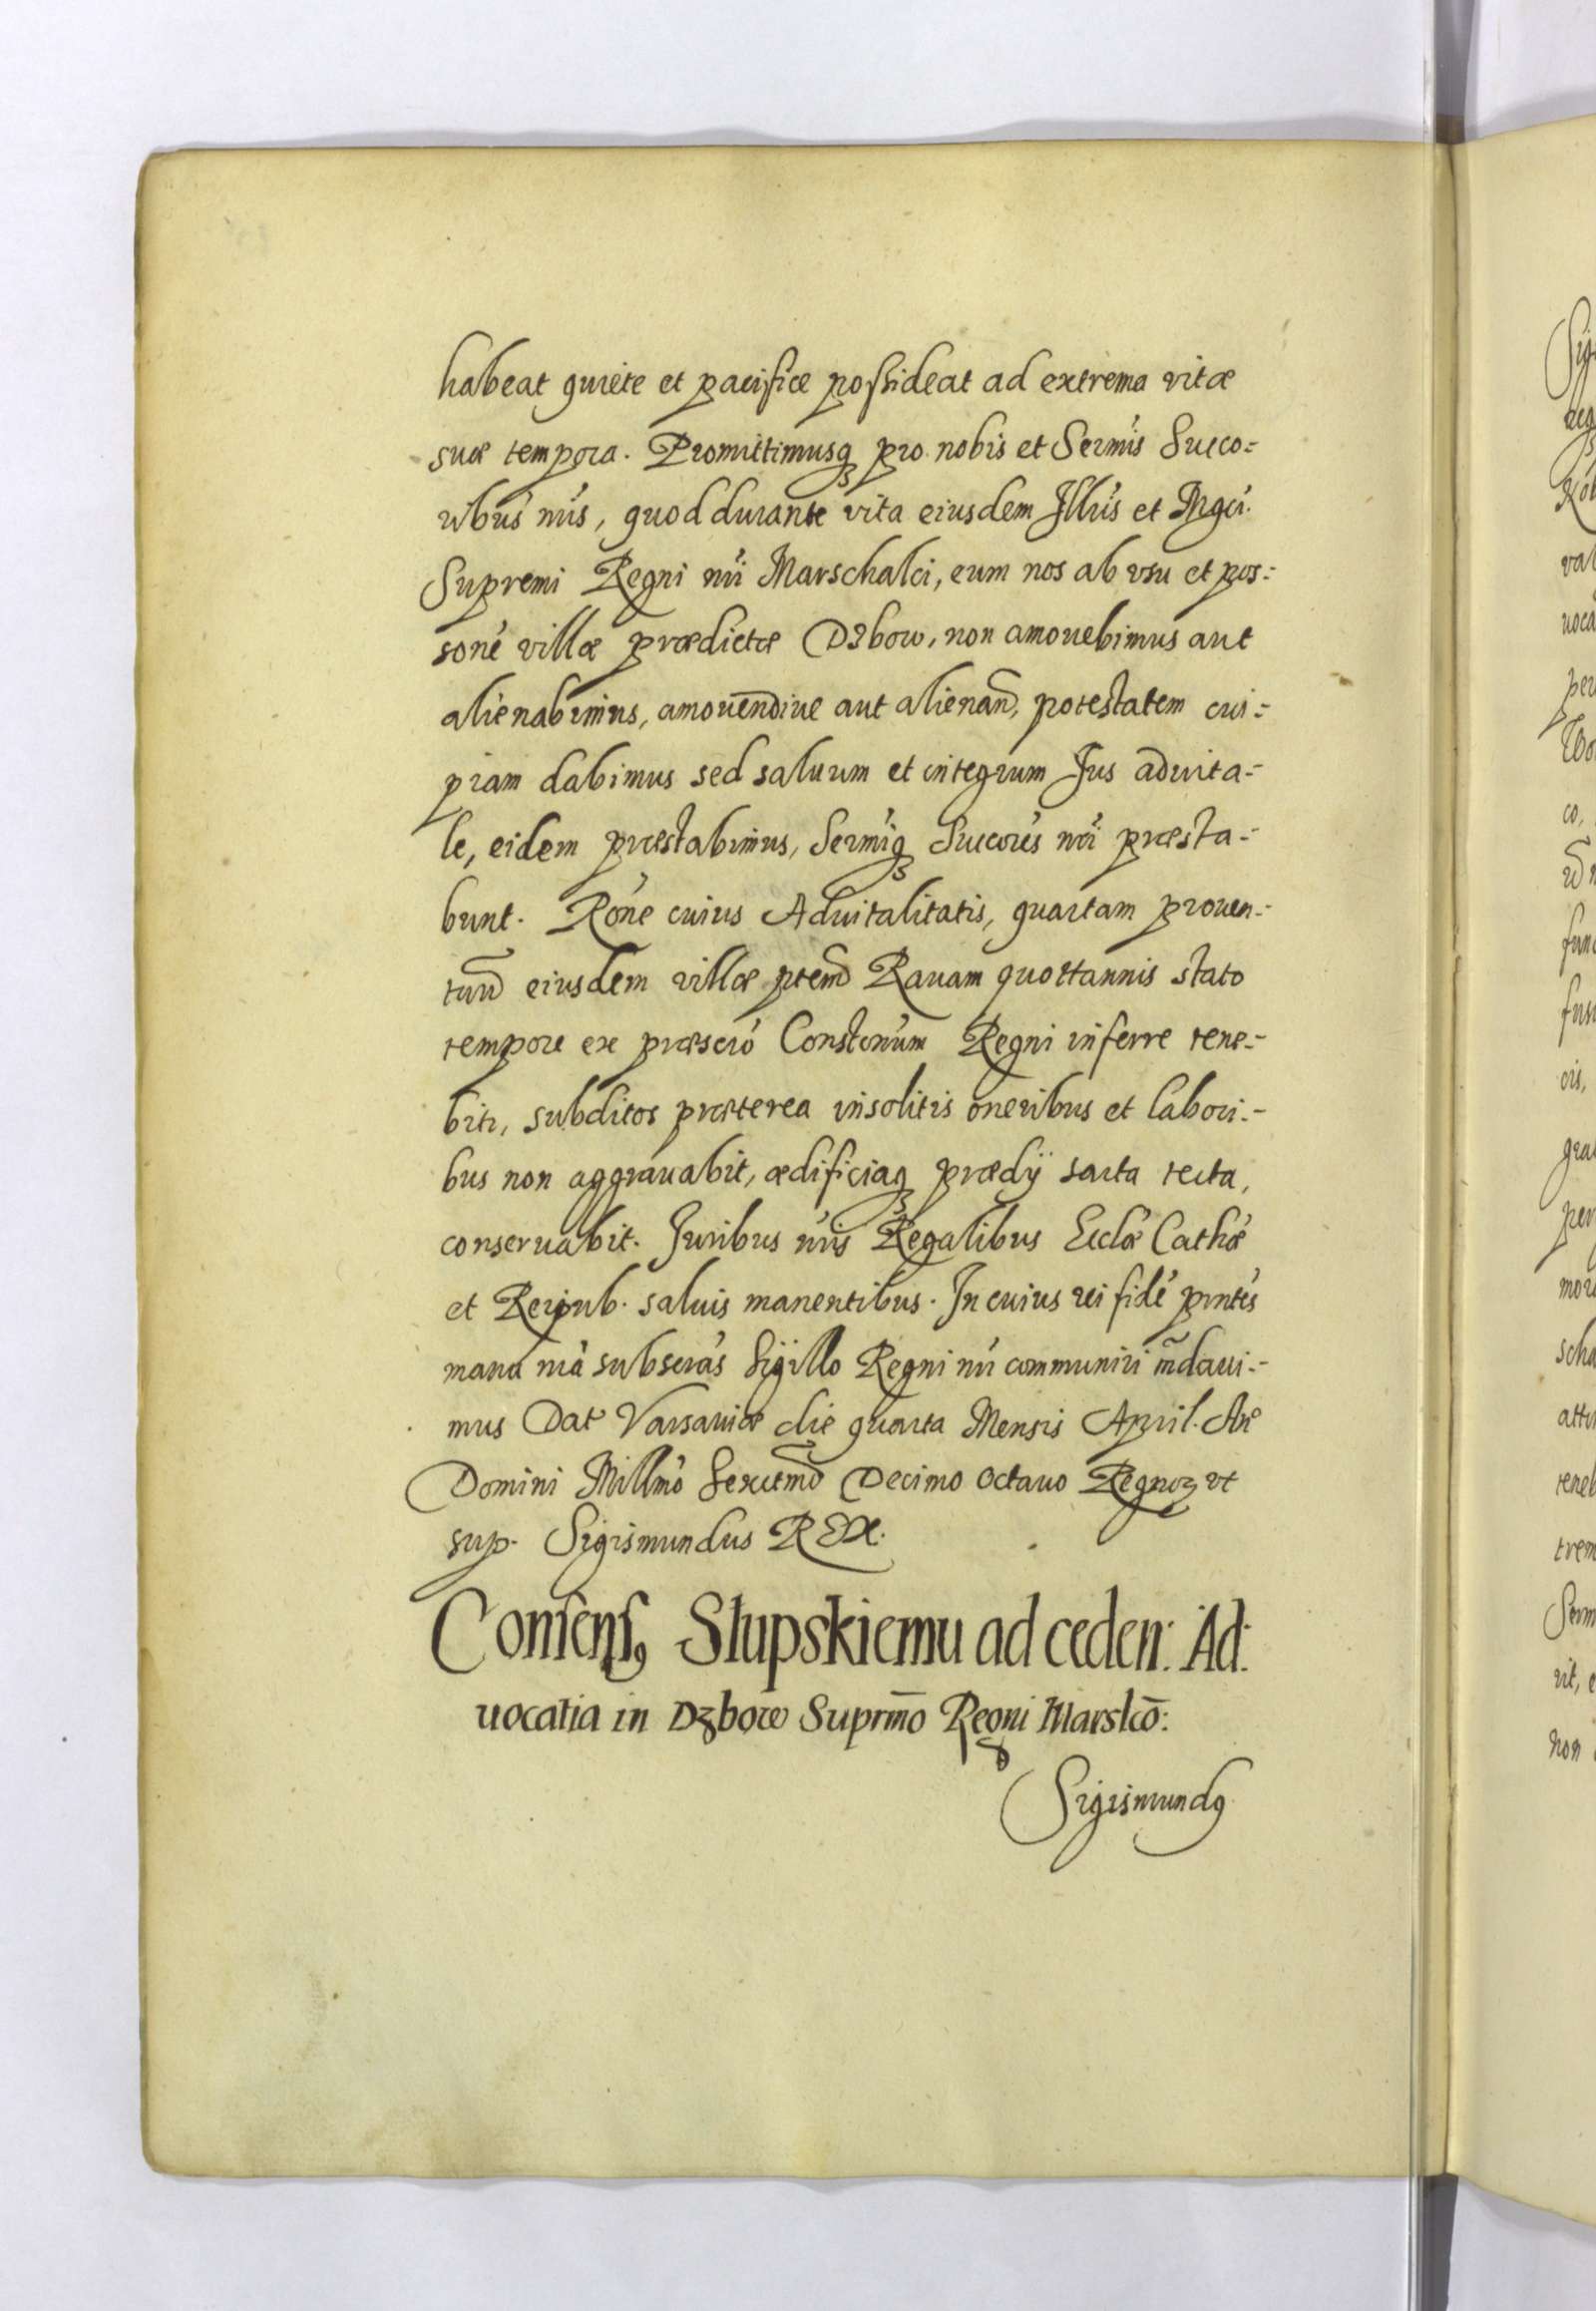 habeat quiete et pacifice possideat ad extrema vitæ
suæ tempora. Promittimusq₃ pro nobis et Sermis Succo=
ribus nris, quod durante vita eiusdem Illris et Mgci.
Supremi Regni nri Marschalci, eum nos ab vsu et pos=
sone villæ prædictæ Dzbow, non amouebimus aut
alienabimus, amouendiue aut alienand, potestatem cui=
piam dabimus sed saluum et integrum Jus aduita=
le, eidem præstabimus, Sermiq₃ Succores nri præsta=
bunt. Rone cuius Aduitalitatis, quartam prouen=
tuu eiusdem villæ ptem Rauam quottannis stato
tempore ex præscro Constonum Regni inferre tene=
bitr, subditos præterea insolitis oneribus et labori=
bus non aggrauabit, ædificiaq₃ prædij sarta tecta,
conseruabit. Juribus nris Regalibus Ecclæ Cathæ
et Reipub. saluis manentibus. In cuius rei fidē pntes
manu nra subscras Sigillo Regni nri communiri m̃daui=
mus Dat Varsauiæ die quarta Mensis April. Ano
Domini Millmo Sexctmo Decimo octauo Regnoꝝ vt
sup. Sigismundus REX.
Consensꝰ Słupskiemu ad ceden: Ad:
uocatia in Dzbow Suprm̄o Regni Marslcō:
Sigismundꝰ